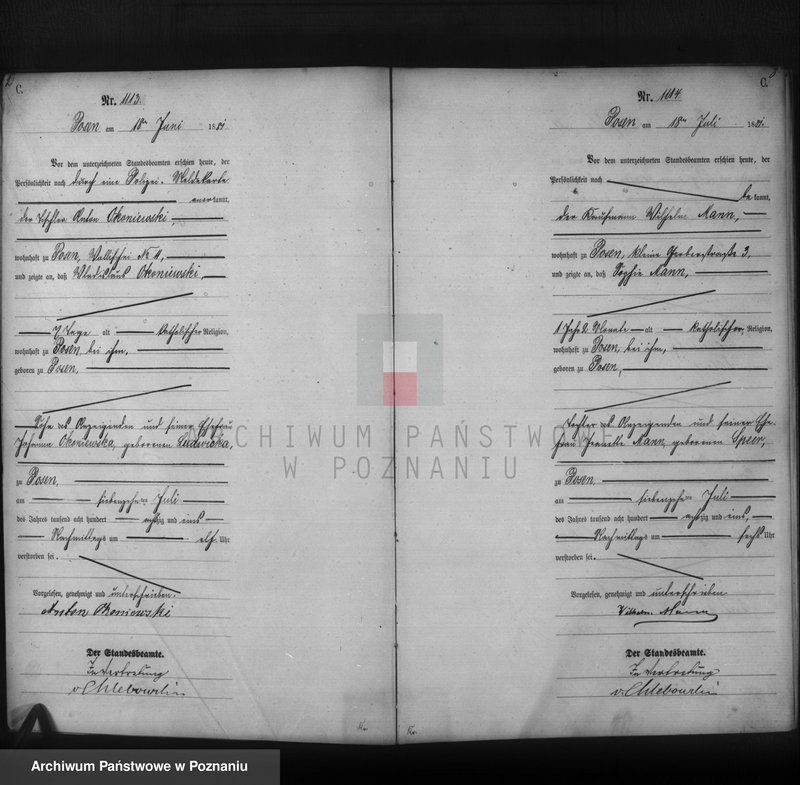 C.
Nr. 1113.
Posen am 18ten Juni 1881.
Vor dem unterzeichneten Standesbeamten erschien heute, der
Persönlichkeit nach durch eine Polizei-Meldekarte
anerkannt,
der Tischler Anton Okoniewski,
wohnhaft zu Posen, Wallischei No 11,
und zeigte an, daß Vladislaus Okoniewski,
7 Tage alt katholischer Religion,
wohnhaft zu Posen, bei ihm,
geboren zu Posen,
Sohn des Anzeigenden und seiner Ehefrau
Johanna Okoniewska, geborenen Ludwicka,
zu Posen,
am siebenzehnten Juli
des Jahres tausend acht hundert achtzig und eins,
Nachmittags um elf Uhr
verstorben sei.
Vorgelesen, genehmigt und unterschrieben.
Anton Okoniewski
Der Standesbeamte.
In Vertretung
v. Chlebowski
C.
Nr. 1114.
Posen am 18ten Juli 1881.
Vor dem unterzeichneten Standesbeamten erschien heute, der
Persönlichkeit nach
bekannt,
der Kaufmann Wilhelm Mann,
wohnhaft zu Posen, kleine Gerberstraße 3,
und zeigte an, daß Sophie Mann,
1 Jahr 2 Monate alt katholischer Religion,
wohnhaft zu Posen, bei ihm,
geboren zu Posen,
Tochter des Anzeigenden und seiner Ehe-
frau Mann, geborenen Speer,
zu Posen,
am siebenzehnten Juli
des Jahres tausend acht hundert achtzig und eins,
Nachmittags um sechs Uhr
verstorben sei.
Vorgelesen, genehmigt und unterschrieben
Wilhelm Mann
Der Standesbeamte.
In Vertretung
v. Chlebowski
ARCHIWUM PAŃSTWOWE
W POZNANIU
Archiwum Państwowe w Poznaniu